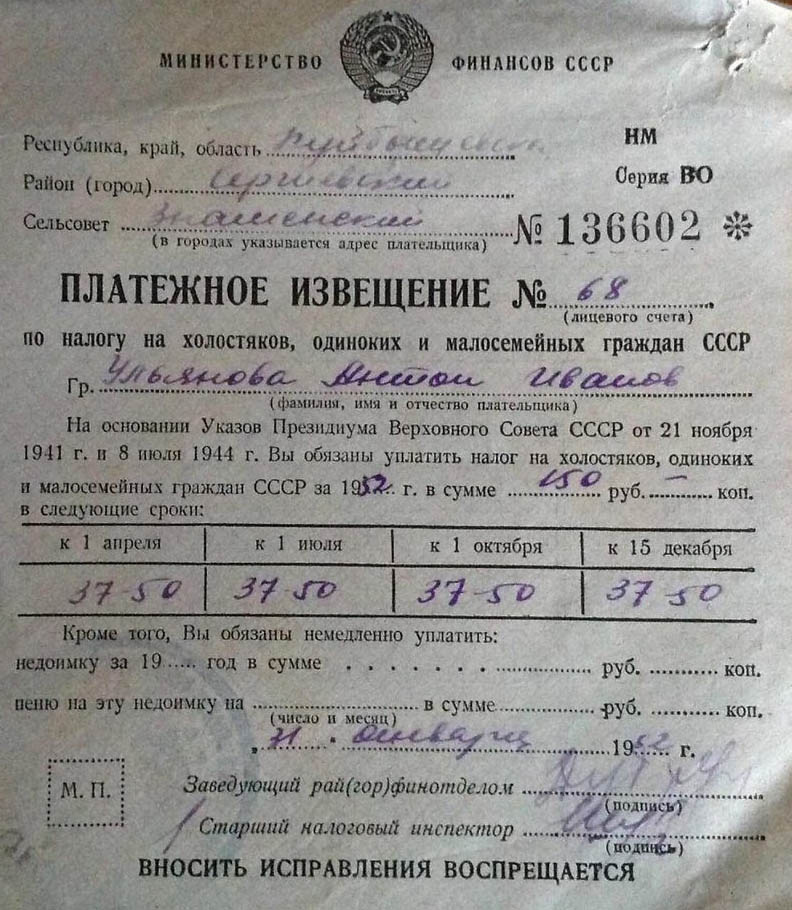 МИНИСТЕРСТВО ФИНАНСОВ СССР
НМ
Республика, край, область Куйбышевская
Серия ВО
Район (город) Сергиевский
Сельсовет Знаменский
(в городах указывается адрес плательщика)
№ 136602 *
ПЛАТЕЖНОЕ ИЗВЕЩЕНИЕ № 68
(лицевого счета)
по налогу на холостяков, одиноких и малосемейных граждан СССР
Гр. Ульянова Антон Иванов
(фамилия, имя и отчество плательщика)
На основании Указов Президиума Верховного Совета СССР от 21 ноября
1941 г. и 8 июля 1944 г. Вы обязаны уплатить налог на холостяков, одиноких
и малосемейных граждан СССР за 1952 г. в сумме 150 руб. – коп.
в следующие сроки:
к 1 апреля к 1 июля к 1 октября к 15 декабря
37-50 37-50 37-50 37-50
Кроме того, Вы обязаны немедленно уплатить:
недоимку за 19..... год в сумме . . . . . . руб. ........... коп.
пеню на эту недоимку на ........... в сумме ........... руб. ........... коп.
(число и месяц)
„ " января 1952 г.
М. П.
Заведующий рай(гор)финотделом
(подпись)
Старший налоговый инспектор
(подпись)
ВНОСИТЬ ИСПРАВЛЕНИЯ ВОСПРЕЩАЕТСЯ